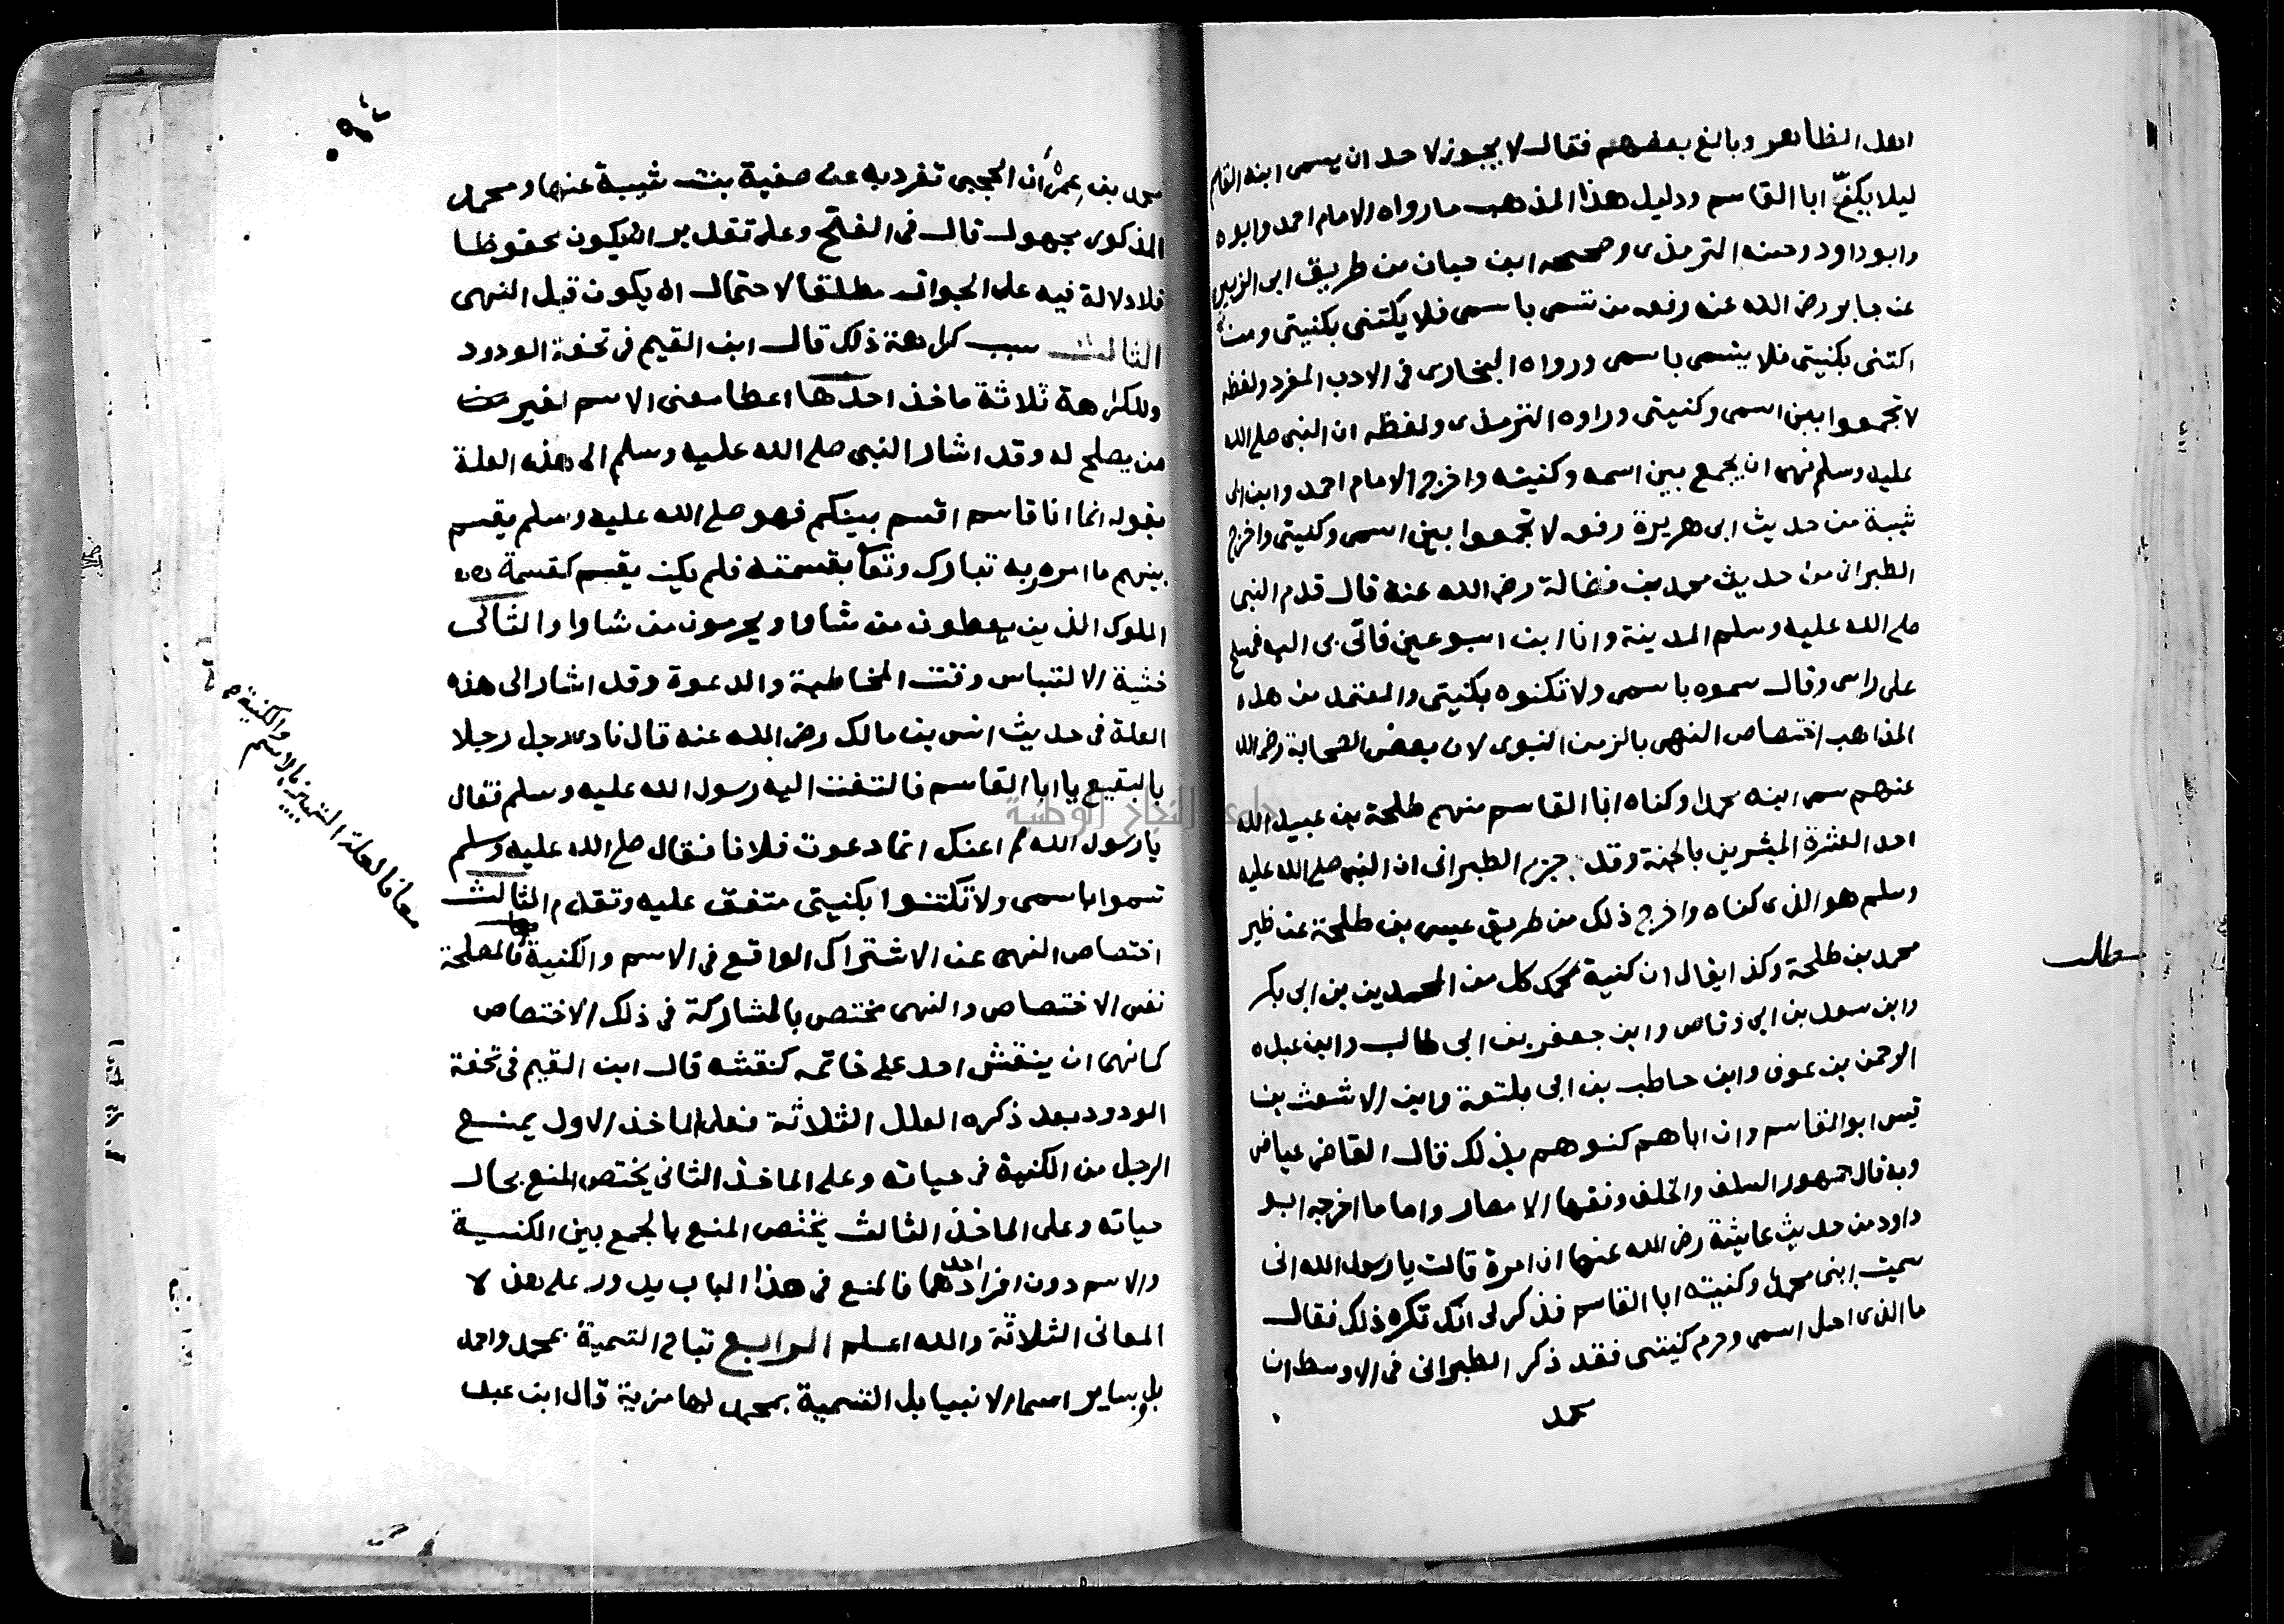 اهل الظاهر وبالغ بعضهم فقال لا يجوز لاحد ان يسمى ابنه القاسم
ليلا يكنى ابا القاسم ودليل هذا المذهب ما رواه الامام احمد وابو ه
وابو داود وحسنه الترمذى وصححه ابن حبان من طريق ابى الزبير
عن جابر رضى الله عنه رفعه من تسمى باسمى فلا يكتنى بكنيتى ومن
اكتنى بكنيتى فلا يتسمى باسمى ورواه البخارى فى الادب المفرد ولفظه
لا تجمعوا بين اسمى وكنيتى ورواه الترمذى ولفظه ان النبى صلى الله
عليه وسلم نهى ان يجمع بين اسمه وكنيته واخرج الامام احمد وابن ابى
شيبة من حديث ابى هريرة رفعه لا تجمعوا بين اسمى وكنيتى واخرج
الطبرانى من حديث محمد بن فضالة رضى الله عنه قال قدم النبى
صلى الله عليه وسلم المدينة وانا ابن اسبوعين فاتى بى اليه فمسح
على راسى وقال سموه باسمى ولا تكنوه بكنيتى والمعتمد من هذه
المذاهب اختصاص النهى بالزمن النبوى لان بعض الصحابة رضى الله
عنهم سمى ابنه محمدا وكناه ابا القاسم منهم طلحة بن عبيد الله
احد العشرة المبشرين بالجنة وقد جزم الطبرانى ان النبى صلى الله عليه
وسلم هو الذى كناه واخرج ذلك من طريق عيسى بن طلحة عن ظير
محمد بن طلحة وكذا يقال ان كنية كل من المحمدين بن ابى بكر
وابن سعد بن ابى وقاص وابن جعفر بن ابى طالب وابن عبد ه
الرحمن بن عوف وابن حاطب بن ابى بلتعة وابن الاشعث بن
قيس ابو القاسم وان اباهم كنوهم بذلك قال القاضى عياض
وبه قال جمهور السلف والخلف وفقها الامصار واما ما اخرجه ابو
داود من حديث عايشة رضى الله عنها ان امرة قالت يا رسول الله انى
سميت ابنى محمدا وكنيته ابا القاسم فذكر لى انك تكره ذلك فقال
ما الذى احل اسمى وحرم كنيتى فقد ذكر الطبرانى فى الاوسط ان
محمد
مطلب
محمد بن عمران الحجبى تفرد به عن صفية بنت شيبة عنها ومحمد
المذكور مجهول قال فى الفتح وعلى تقدير ان يكون محفوظا
فلا دلالة فيه على الجواز مطلقا لاحتمال ان يكون قبل النهى
الثالث سبب كراهة ذلك قال ابن القيم فى تحفة الودود
وللكراهة ثلاثة ماخذ احدها اعطا معنى الاسم لغير
من يصلح له وقد اشار النبى صلى الله عليه وسلم الى هذه العلة
بقوله انما انا قاسم اقسم بينكم فهو صلى الله عليه وسلم يقسم
بينهم ما امره ربه تبارك وتعا بقسمته فلم يكن يقسم كقسمة
الملوك الذين يعطون من شاوا ويحرمون من شاوا والثانى
خشية الالتباس وقت المخاطبة والدعوة وقد اشار الى هذه
العلة فى حديث انس بن مالك رضى الله عنه قال نادى رجل رجلا
بالبقيع يا ابا القاسم فالتفت اليه رسول الله عليه وسلم فقال
يا رسول الله لم اعنك انما دعوت فلانا فقال صلى الله عليه وسلم
تسموا باسمى ولا تكتنوا بكنيتى متفق عليه وتقدم الثالث
اختصاص النهى عن الاشتراك الواقع فى الاسم والكنية فالمصلحة
نفس الاختصاص والنهى مختص بالمشاركة فى ذلك الاختصاص
كما نهى ان ينقش احد على خاتمه كنقشه قال ابن القيم فى تحفة
الودود بعد ذكره العلل الثلاثة فعلى الماخذ الاول يمنع
الرجل من الكنية فى حياته وعلى الماخذ الثانى يختص المنع بحال
حياته وعلى الماخذ الثالث يختص المنع بالجمع بين الكنية
والاسم دون افراد احدهما فالمنع فى هذا الباب يدور على هذ لا
المعانى الثلاثة والله اعلم الرابع تباح التسمية بمحمد واحمد
بل وبساير اسما الانبيا بل التسمية بمحمد لها مزية قال ابن عبد